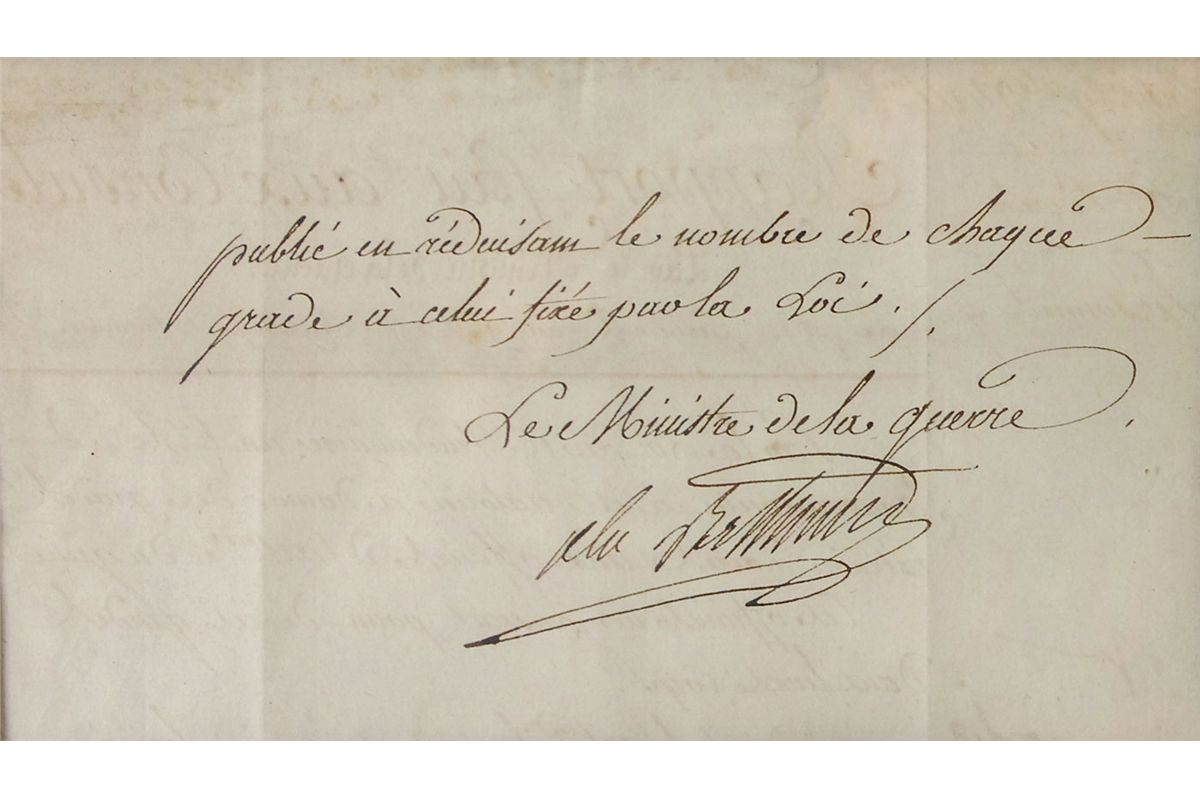 publié en réduisant le nombre de chaque
grade à celui fixé par la Loi ./.
Le Ministre de la guerre.
Alex Berthier